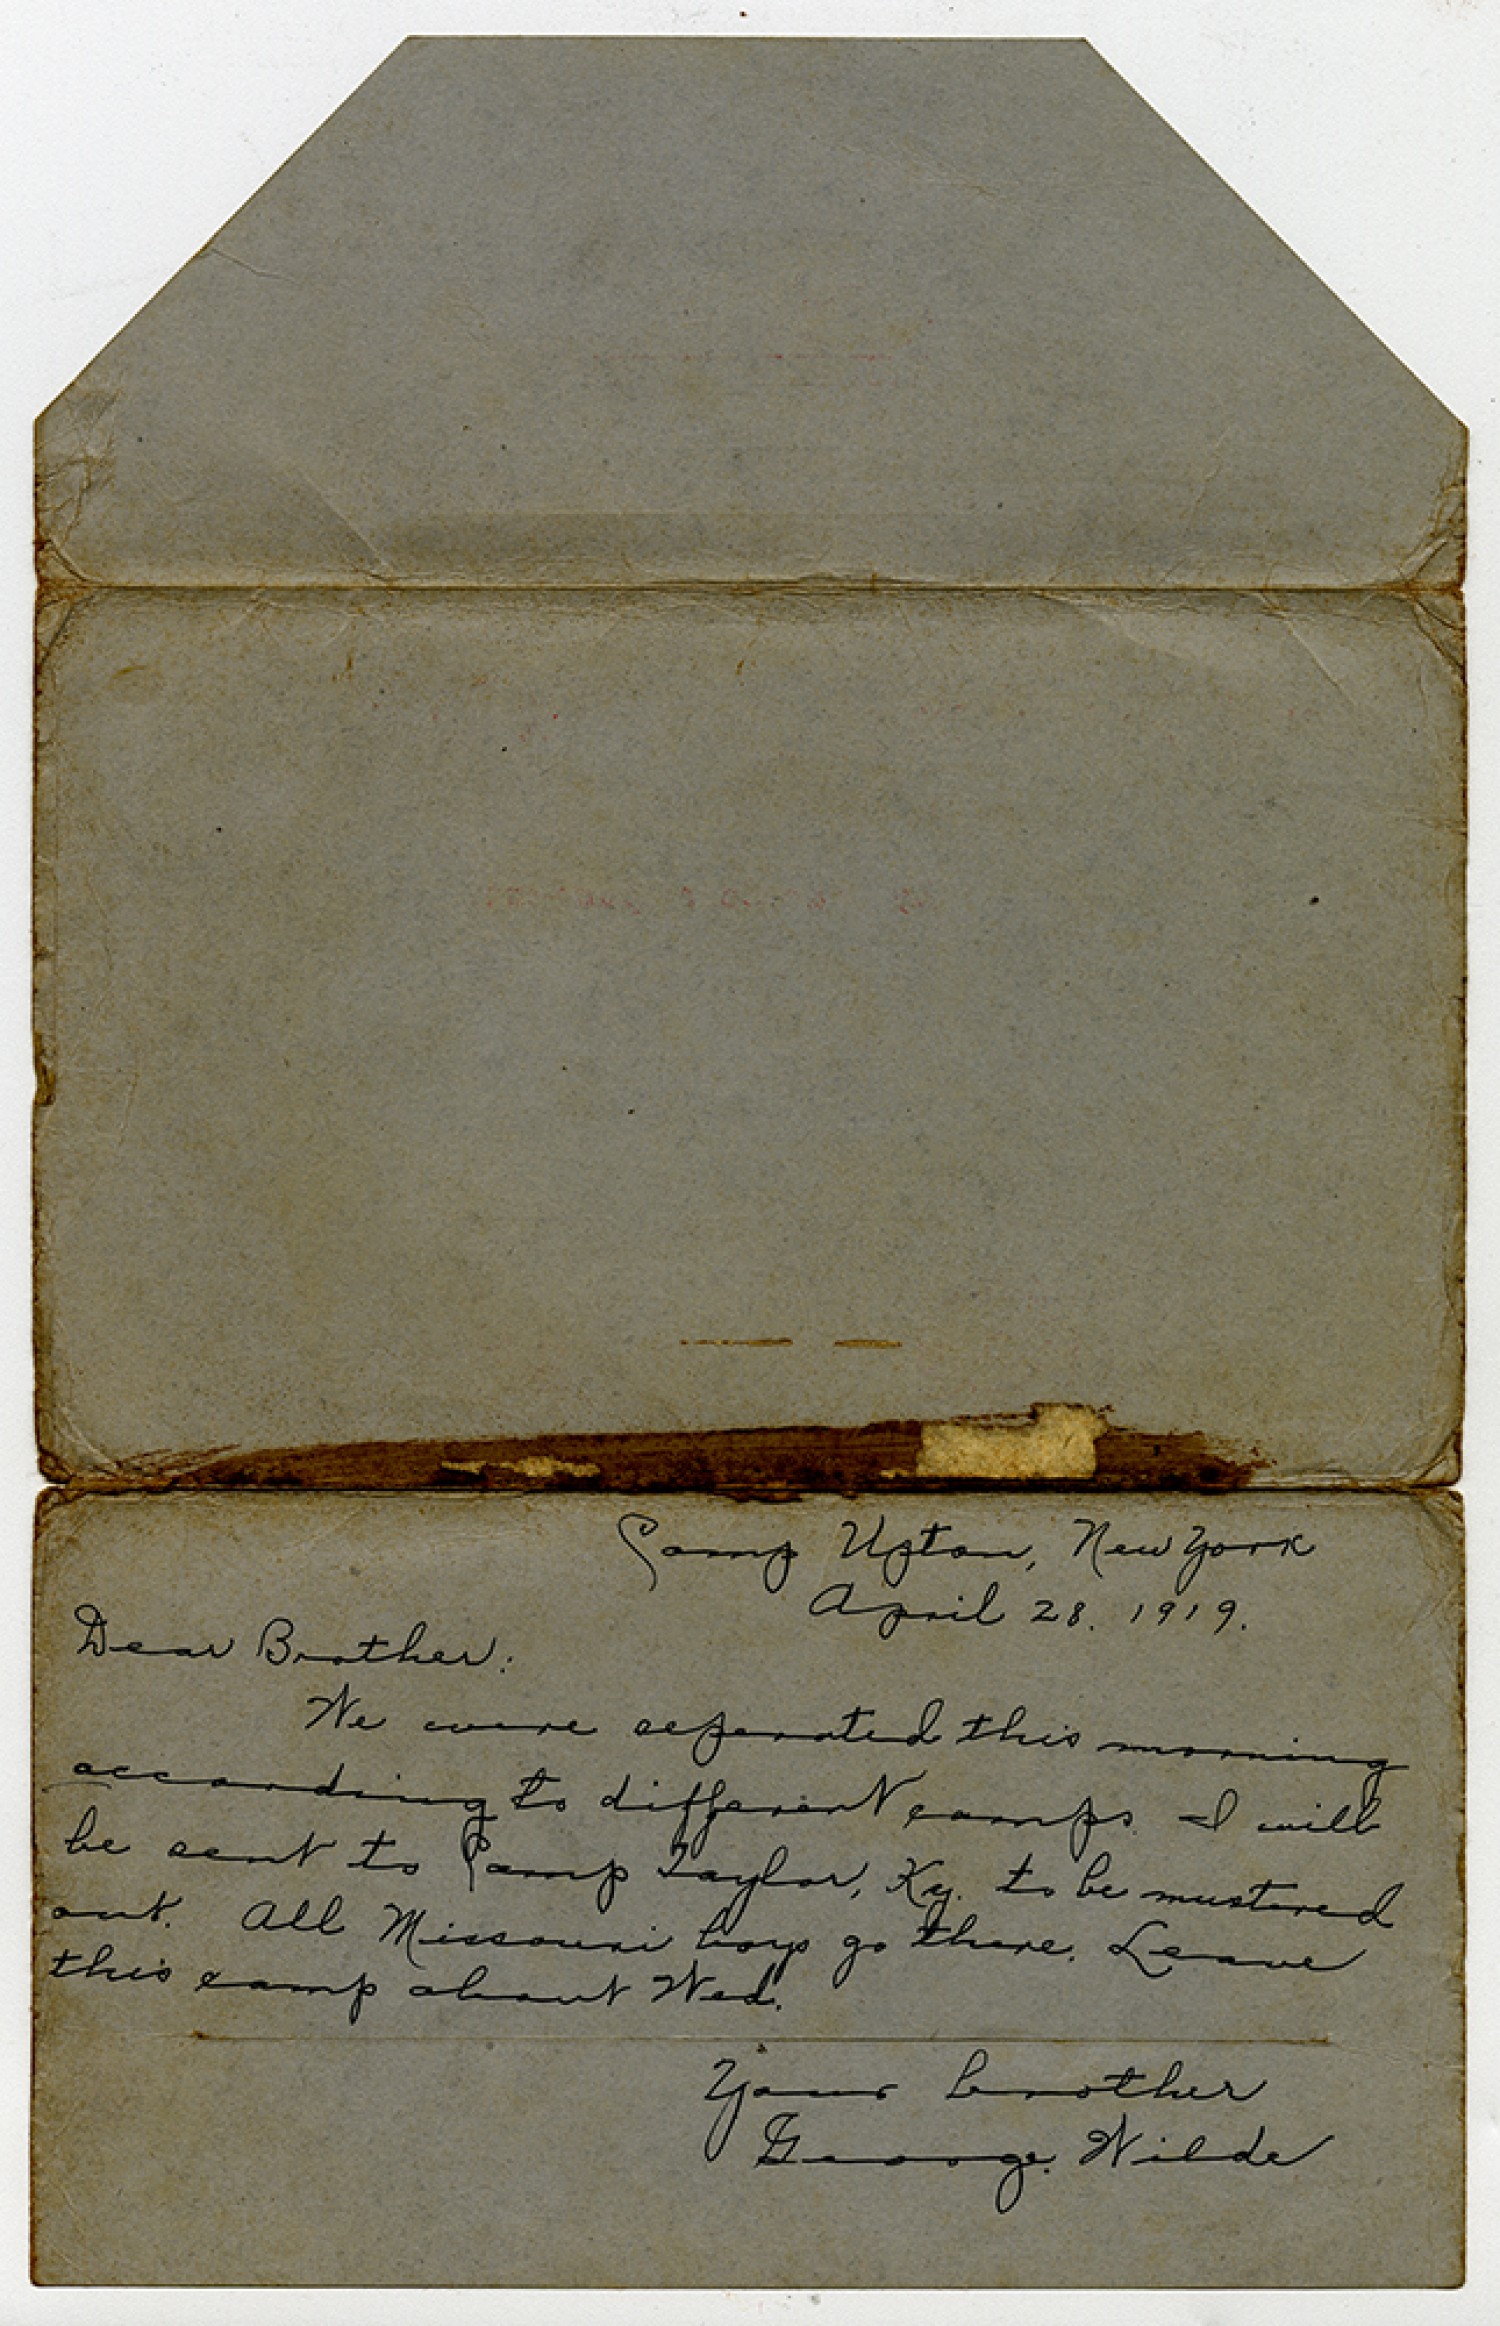 Camp Upton, New York
April 28. 1919.
Dear Brother:
We were separated this morning
according to different camps. I will
be sent to Camp Taylor, Ky. to be mustered
out. All Missouri boys go there. Leave
this camp about Wed.
Your brother
George. Wilde